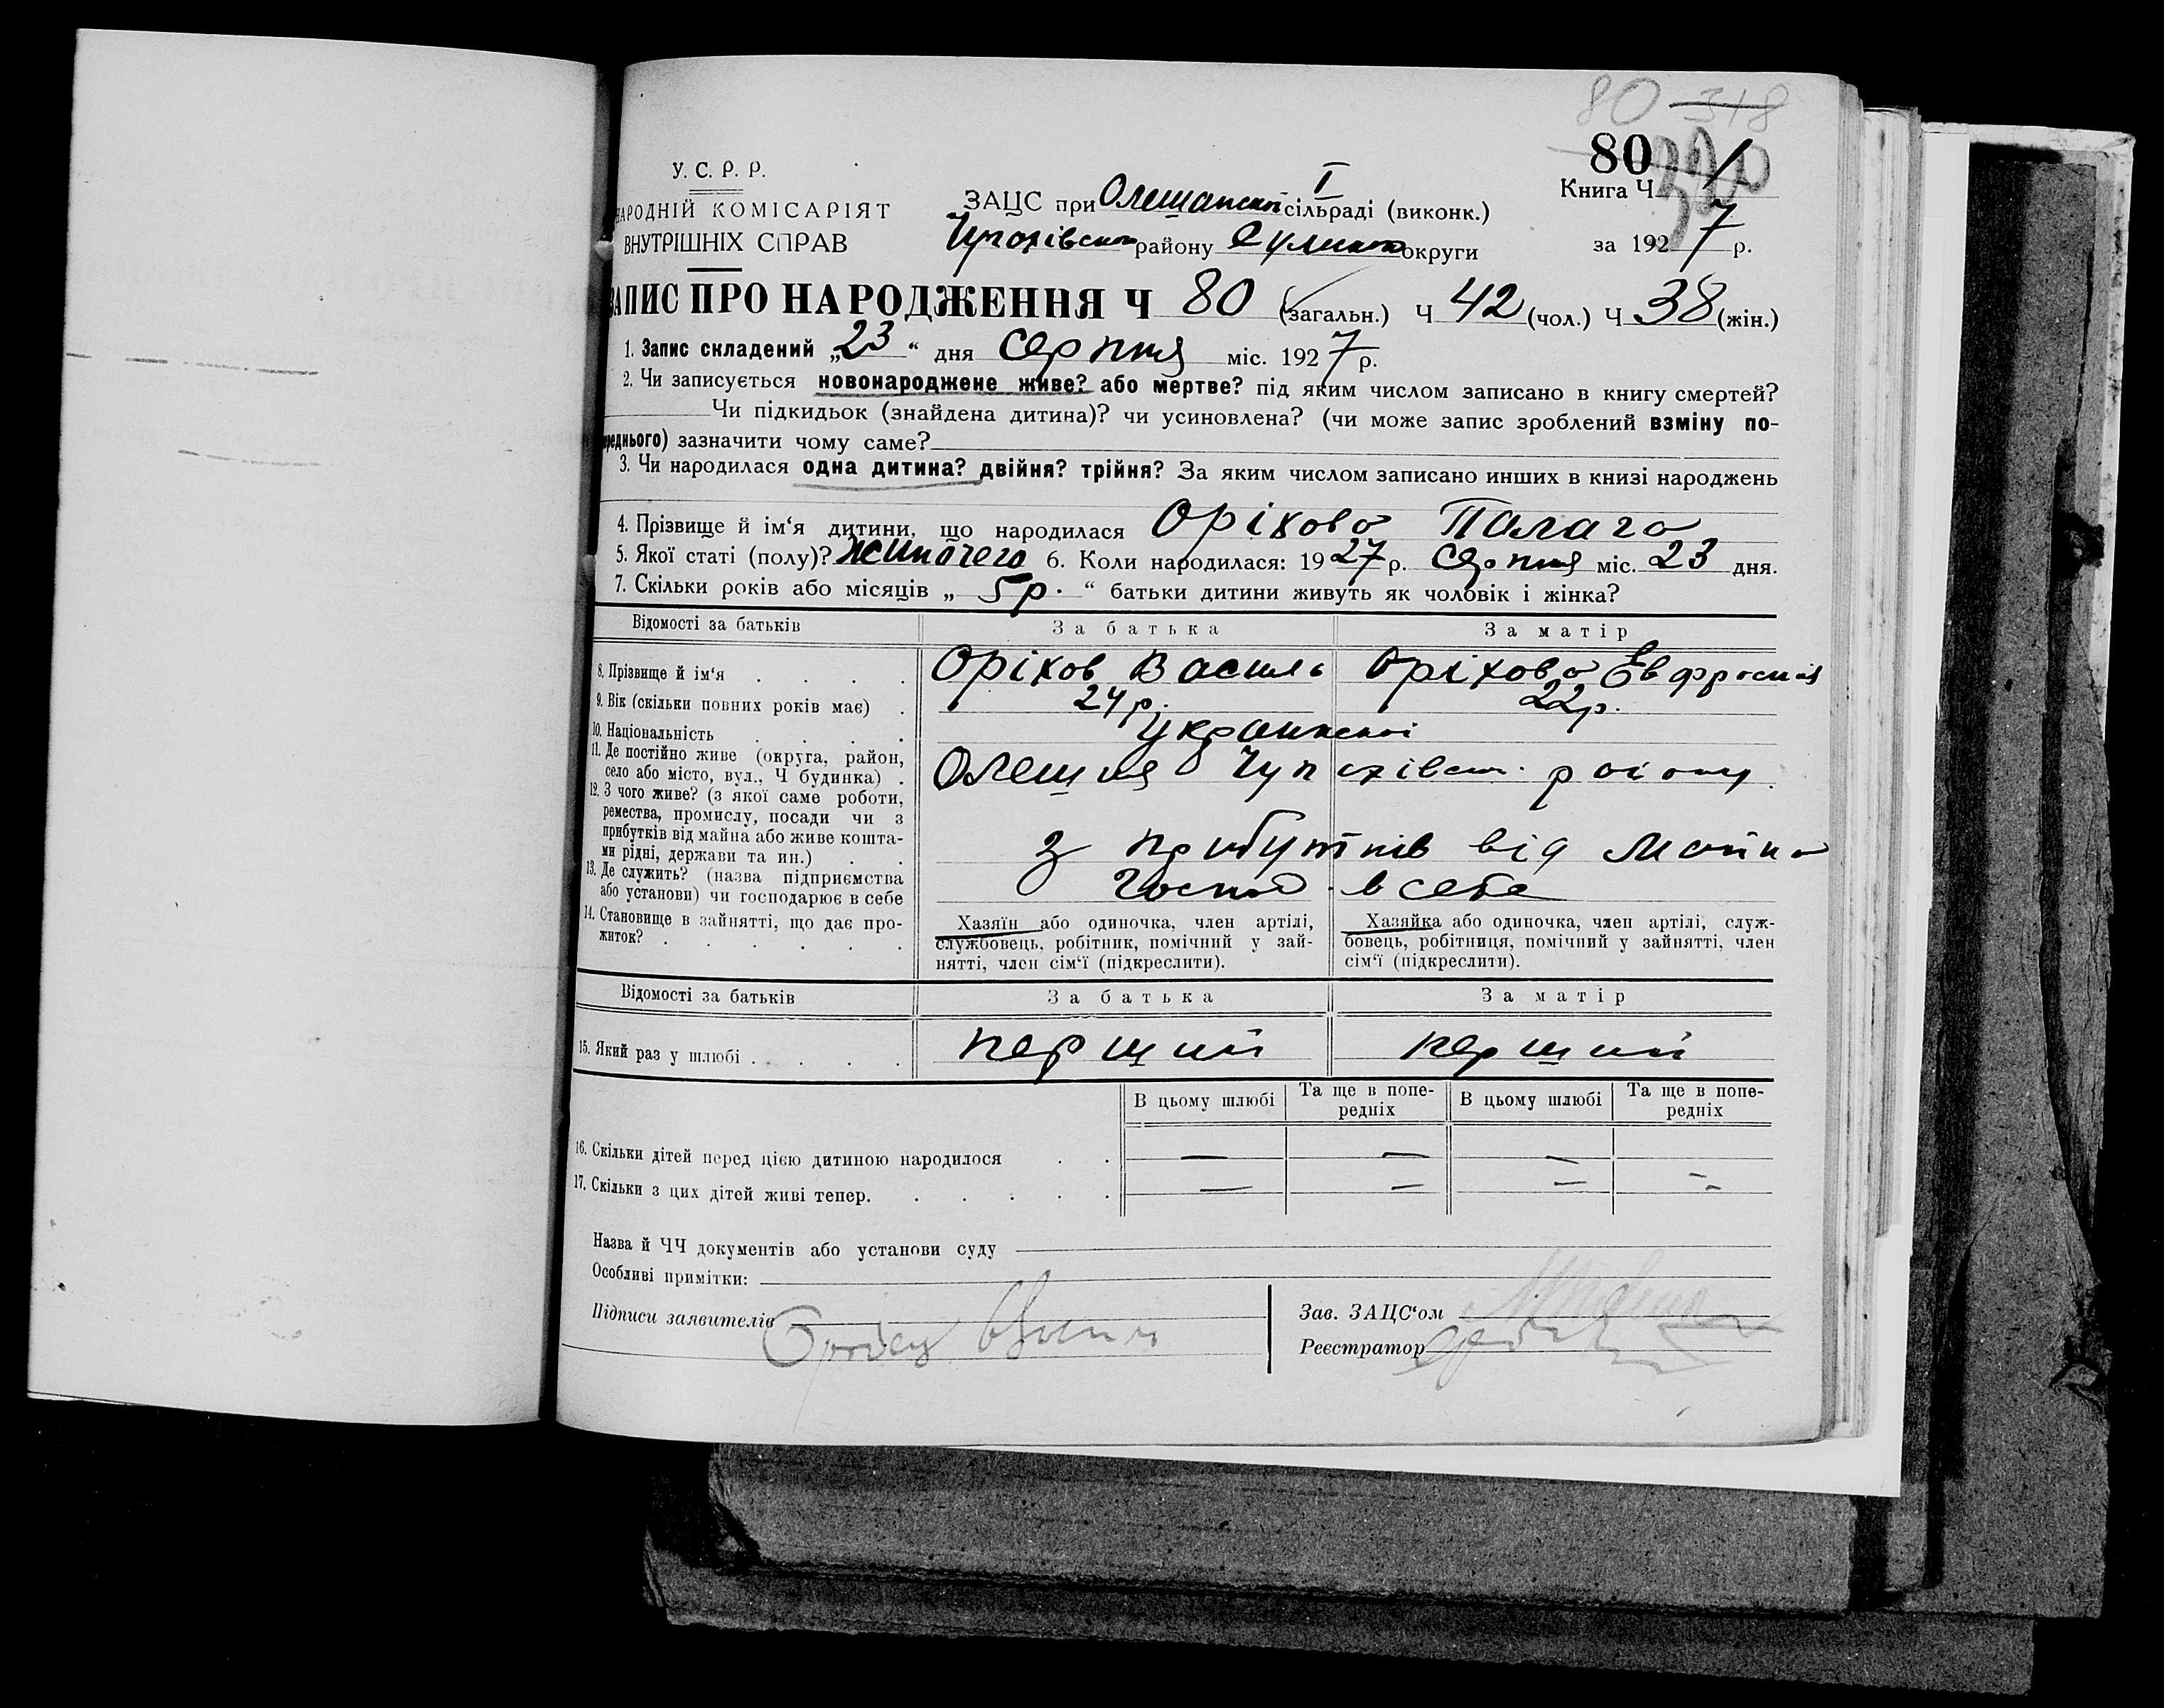 80 318
80
У. С. Р. Р.
НАРОДНІЙ КОМІСАРІЯТ
ВНУТРІШНІХ СПРАВ
ЗАЦС при Олешанской I сільраді (виконк.)
Чупахівського району Сумской округи
Книга Ч 1
за 1927 р.
ЗАПИС ПРО НАРОДЖЕННЯ Ч 80 (загальн.) Ч 42 (чол.) Ч 38 (жін.)
1. Запис складений „23“ дня серпня міс. 1927 р.
2. Чи записується новонароджене живе? або мертве? під яким числом записано в книгу смертей?
Чи підкидьок (знайдена дитина)? чи усиновлена? (чи може запис зроблений взміну по-
ереднього) зазначити чому саме?
3. Чи народилася одна дитина? двійня? трійня? За яким числом записано инших в книзі народжень
4. Прізвище й ім‘я дитини, що народилася Оріхова Палага
5. Якої статі (полу)? жиночего 6. Коли народилася: 1927 р. серпня міс. 23 дня.
7. Скільки років або місяців „ 5 р. “ батьки дитини живуть як чоловік і жінка?
Відомості за батьків За батька За матір
8. Прізвище й ім‘я . . . . Оріхов Василь Оріхова Евфросинія
9. Вік (скільки повних років має) . 24 р. 22 р.
10. Національність . . . . украинскої
11. Де постійно живе (округа, район,
село або місто, вул., Ч будинка) . Олешня Чупахівськ. района
12. З чого живе? (з якої саме роботи,
ремества, промислу, посади чи з
прибутків від майна або живе кошта-
ми рідні, держави та ин.) . . з прибутків від майна
13. Де служить? (назва підприємства
або установи) чи господарює в себе Господ. в себе
14. Становище в зайнятті, що дає про-
житок? . . . . . .
Хазяїн або одиночка, член артілі,
службовець, робітник, помічний у зай-
нятті, член сім‘ї (підкреслити).
Хазяйка або одиночка, член артілі, служ-
бовець, робітниця, помічний у зайнятті, член
сім‘ї (підкреслити).
Відомості за батьків За батька За матір
15. Який раз у шлюбі . . . . перший перший
В цьому шлюбі Та ще в попе-
редніх В цьому шлюбі Та ще в попе-
редніх
16. Скільки дітей перед цією дитиною народилося . . — — —
17. Скільки з цих дітей живі тепер. . . . . . . — — — —
Назва й ЧЧ документів або установи суду
Особливі примітки:
Підписи заявителів
Зав. ЗАЦС‘ом
Реєстратор